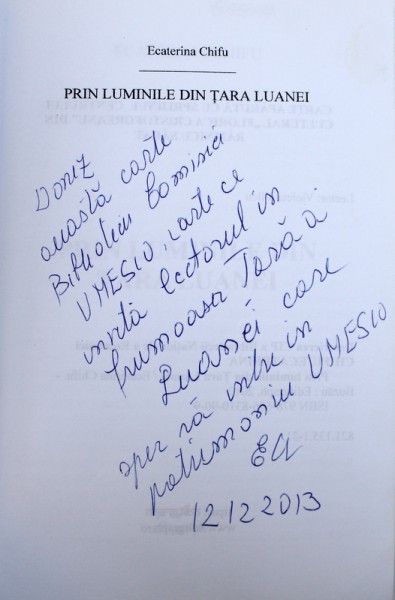 Ecaterina Chifu
PRIN LUMINILE DIN ȚARA LUANEI
Donez
această carte
Bibliotecii Comisiei
UNESCO, carte ce
invită lectorul în
frumoasa Țară a
Luanei care
sper să intre in
patrimoniu UNESCO
12.12.2013